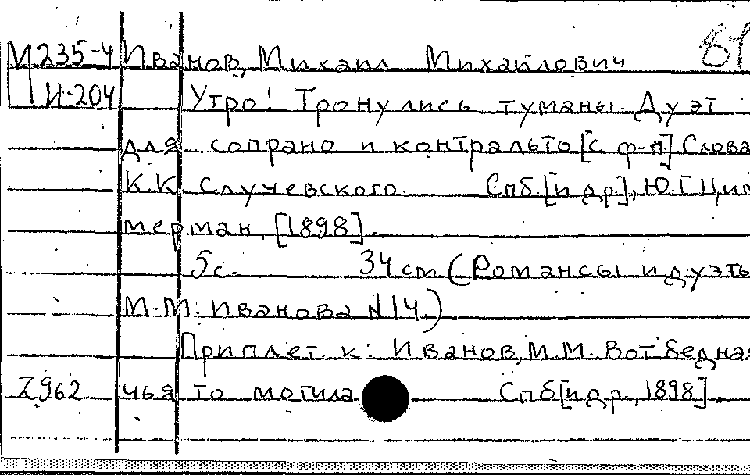 М235-4 Иванов, Михаил Михайлович 81
И-204 Утро! Тронулись туманы. Дуэт
для сопрано и контральто [с ф-п] Слова
К.К. Случевского. Спб. [и др], Ю.Г Цим
мерман, [1898].
5с. 34 см (Романсы и дуэты
М.М. Иванова №14)
Приплет к: Иванов, М.М. Вот бедная
Z962 чья то могила Спб [и др., 1898]